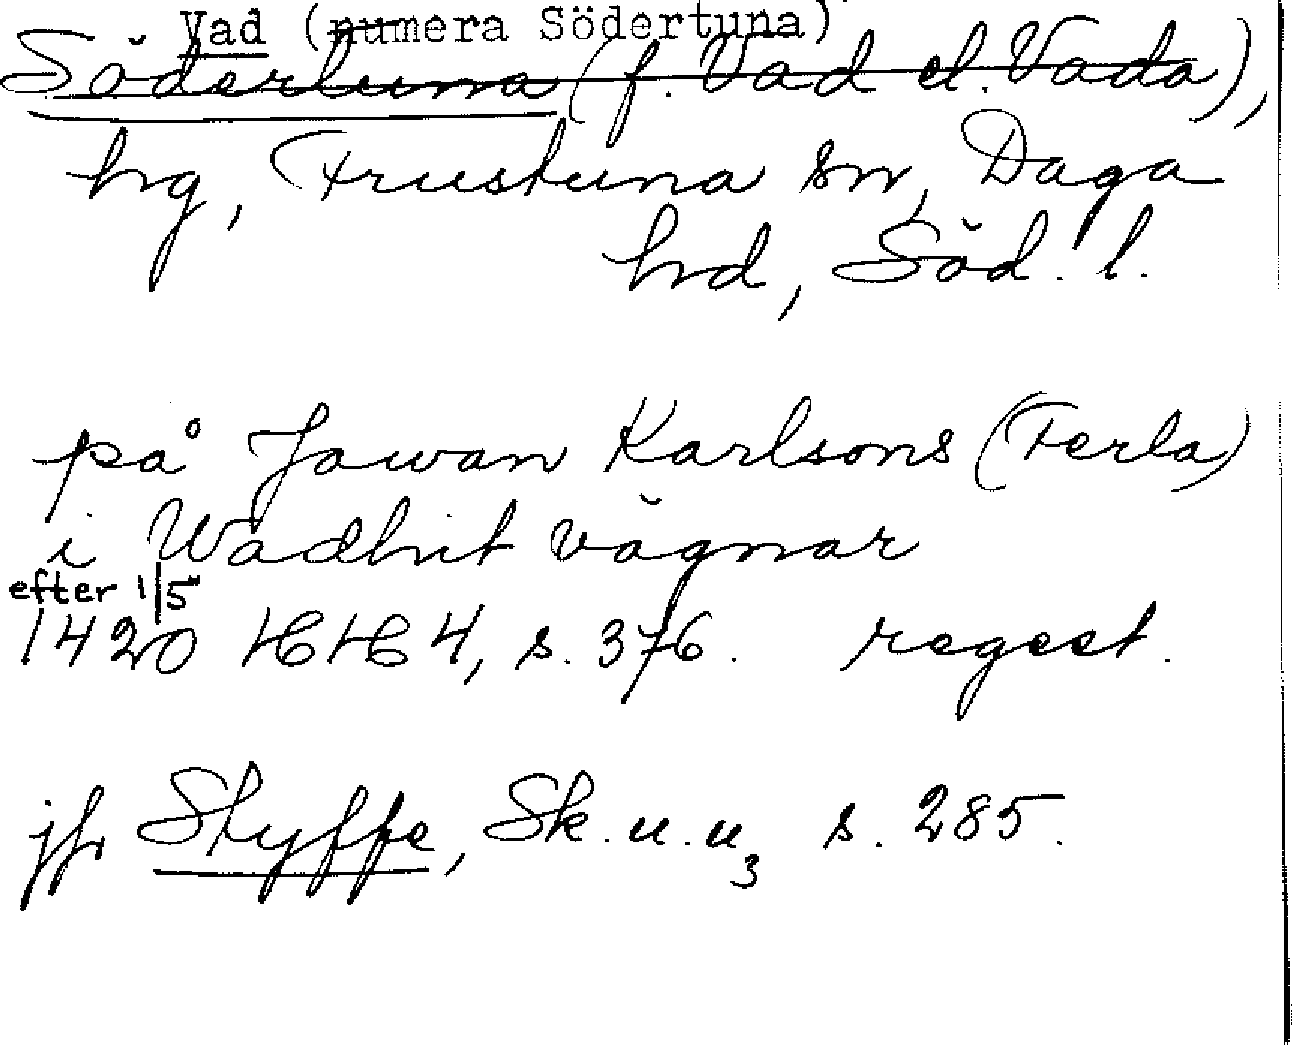 Vad (numera Södertuna)
Södertuna (f. Vad el. Vada),
hg, Frustuna sn, Daga
hd, Söd. l.
på Jowan Karlsons (Ferla)
i Wadhit vägnar
efter 1/5
1420 HH 4, s. 376. regest.
jfr Styffe, Sk. u. u₃ s. 285.